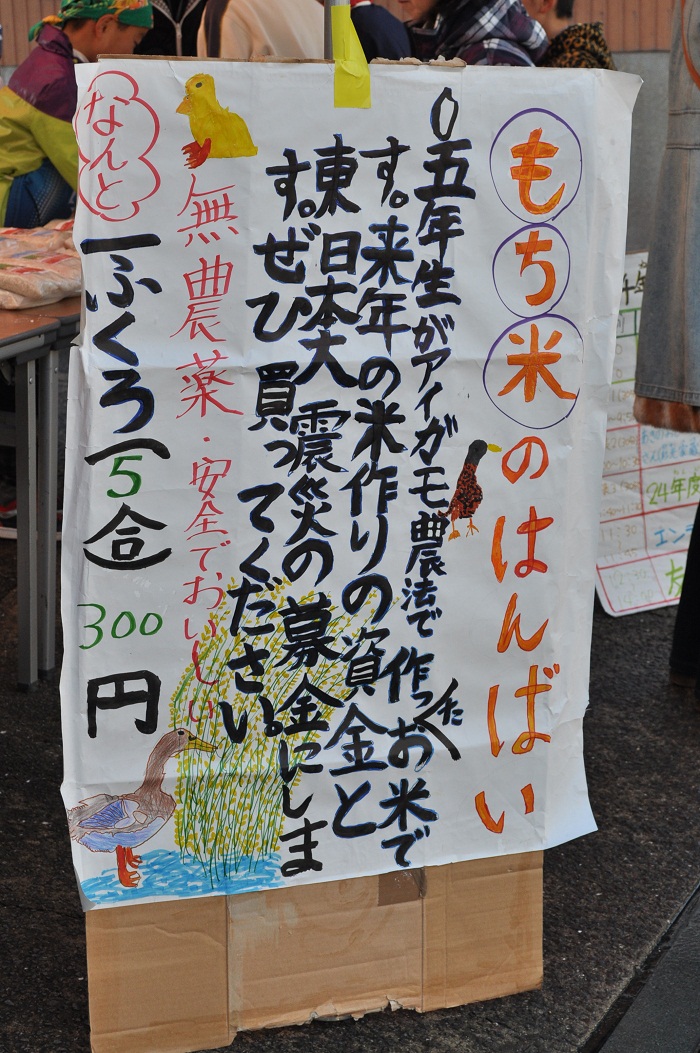 もち米のはんばい
○五年生がアイガモ農法で作ったお米で
す。来年の米作りの資金と
東日本大震災の募金にしま
す。ぜひ買ってください。
無農薬・安全でおいしい
なんと
一ふくろ(5合)300円
24年度